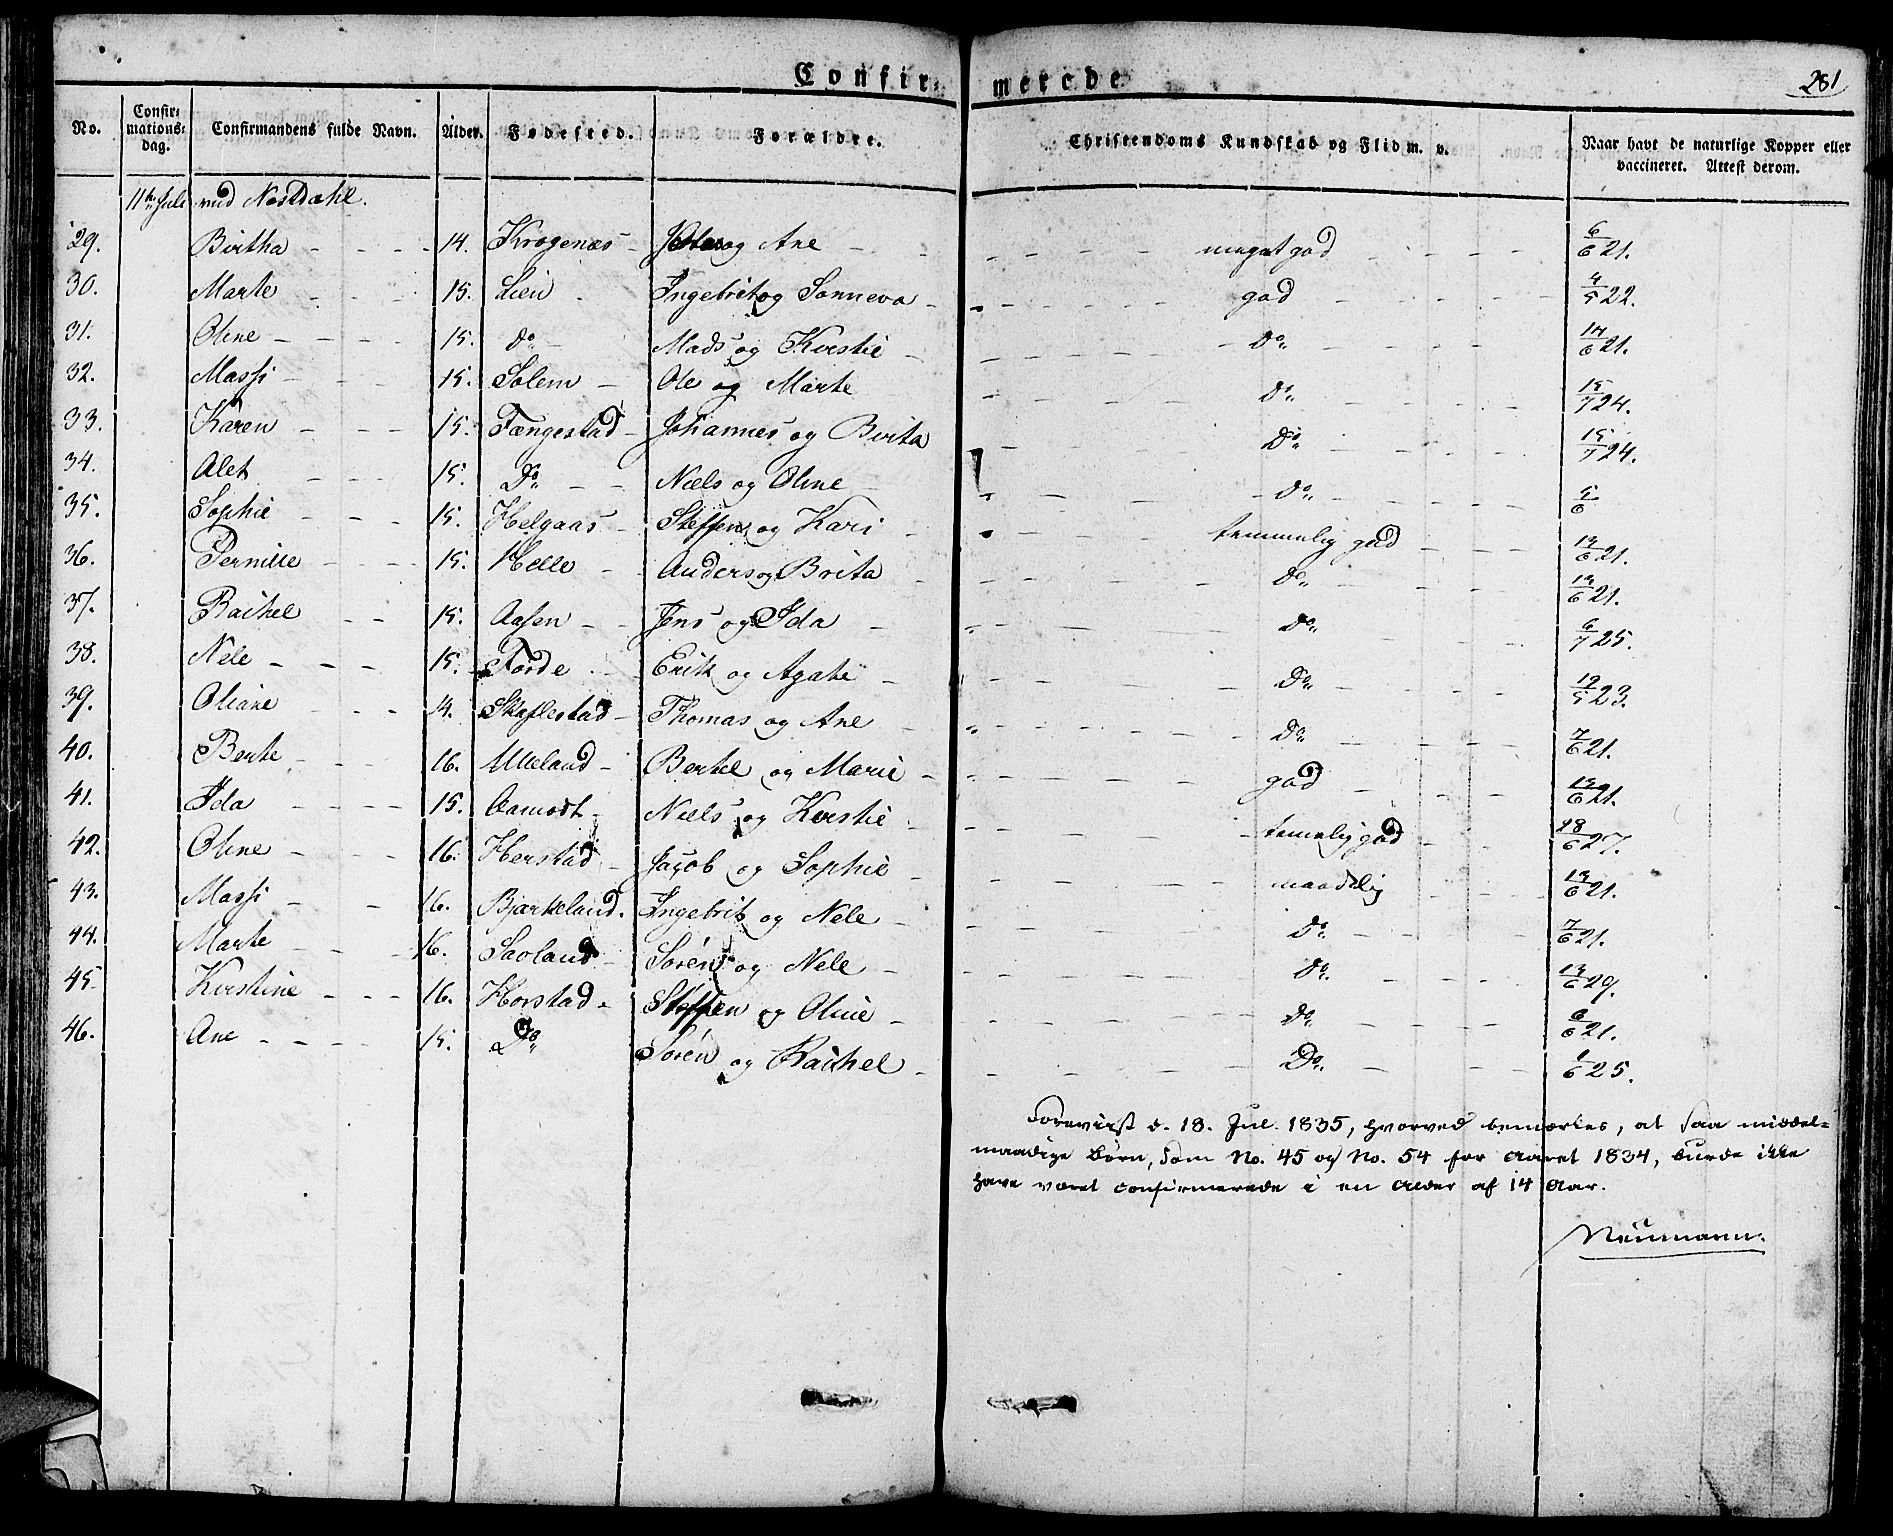 Confirmerede
281
No. Confirmationsdag. Confirmandens fulde Navn. Alder. Fødested. Forældre. Christendoms Kundskab og Flid m. v. Naar havt de naturlige Kopper eller vaccineret. Attest derom.
11te Juli ved Nordahl.
29. Birtha - 14. Krogenæs - og Ane - meget god - 6/6 21.
30. Marte - 15. Lien - Ingebrit og Sonneva - god - 4/5 22.
31. Oline - 15. Do - Mads og Kirstie - Do - 14/6 21.
32. Massi - 15. Solem - Ole og Marte - Do - 15/7 24.
33. Karen - 15. Fængestad - Johannes og Birta - Do - 15/7 24.
34. Alet - 15. Do - Niels og Oline - Do - 5/6
35. Sophie - 15. Helgaas - Steffen og Kari - temmelig god - 13/6 21.
36. Pernille - 15. Helle - Anders og Brita - Do - 13/6 21.
37. Rachel - 15. Aasen - Jens og Ida - Do - 6/7 25.
38. Nele - 15. Førde - Erik og Agate - Do - 12/5 23.
39. Oliane - 14. Skaflestad - Thomas og Ane - Do - 7/6 21.
40. Berte - 16. Ulleland - Bertel og Marie - god - 13/6 21.
41. Ida - 15. Aamodt - Niels og Kirstie - temelig god - 28/6 27.
42. Oline - 16. Herstad - Jacob og Sophie - maadelig - 13/6 21.
43. Massi - 16. Bjørkeland. Ingebrit og Nele - Do - 7/6 21.
44. Marte - 16. Savland - Søren og Nele - Do - 13/6 29.
45. Kirstine - 16. Horstad - Steffen og Oline - Do - 6/6 21.
46. Ane - 15. Do Søren og Rachel - Do - 1/6 25.
Foreviist d. 18. Jul. 1835, hvorved bemærkes, at saa middel-
maadige Børn, som No. 45 og No. 54 for Aaret 1834, burde ikke
have været confirmerede i en Alder af 14 Aar.
Neumann.